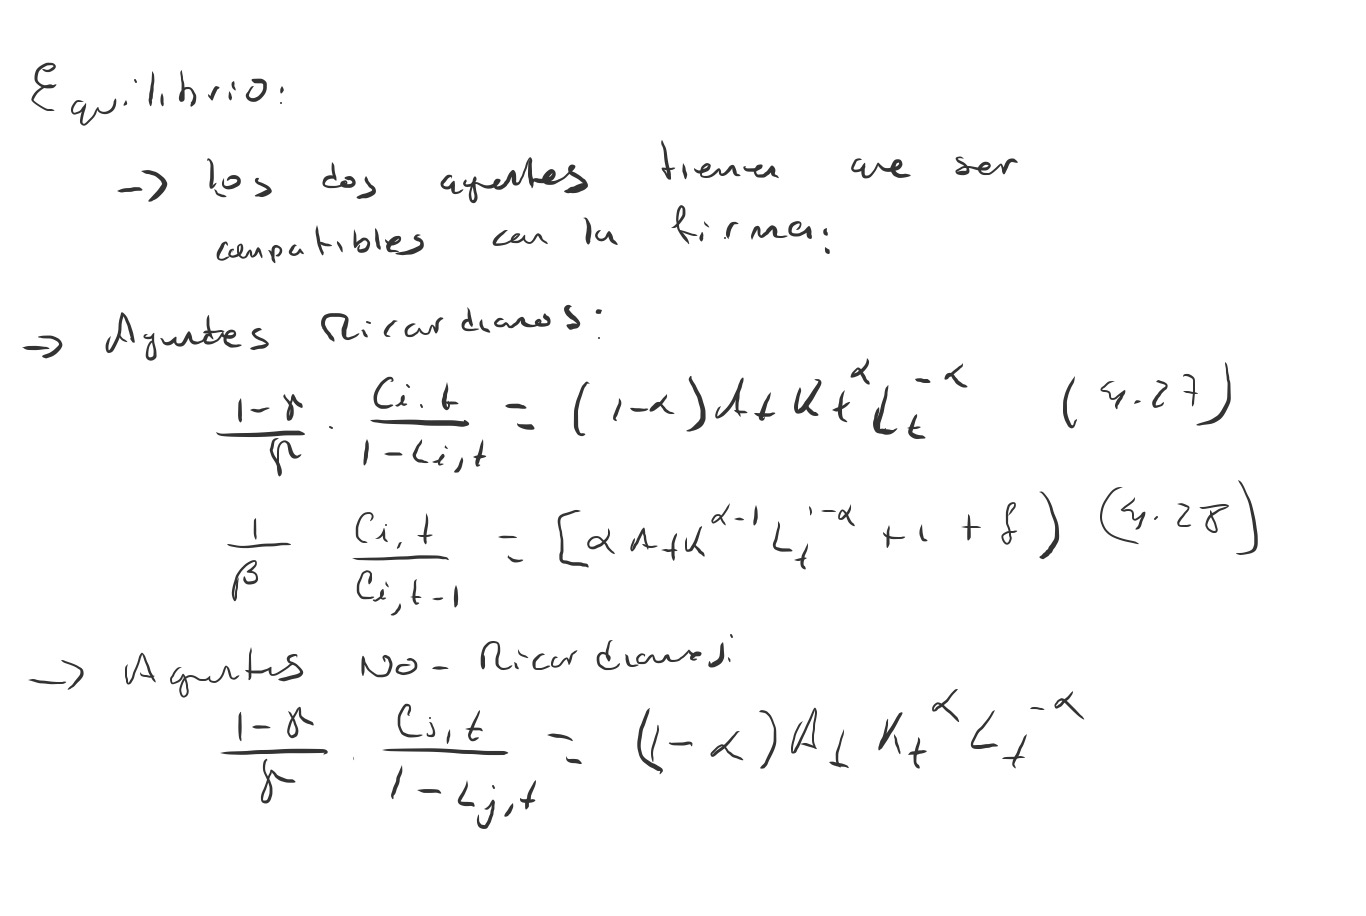 Equilibrio:
→ los dos agentes tienen que ser
compatibles con la firma:
→ Agentes Ricardianos:
\frac{1-γ}{γ} · \frac{C_{i,t}}{1-L_{i,t}} = (1-α) A_t K_t^α L_t^{-α} (Eq. 27)
\frac{1}{β} \frac{C_{i,t}}{C_{i,t-1}} = [α A_t K^{α-1} L_t^{1-α} + 1 + δ) (Eq. 28)
→ Agentes No-Ricardianos:
\frac{1-γ}{γ} · \frac{C_{j,t}}{1-L_{j,t}} = (1-α) A_t K_t^α L_t^{-α}